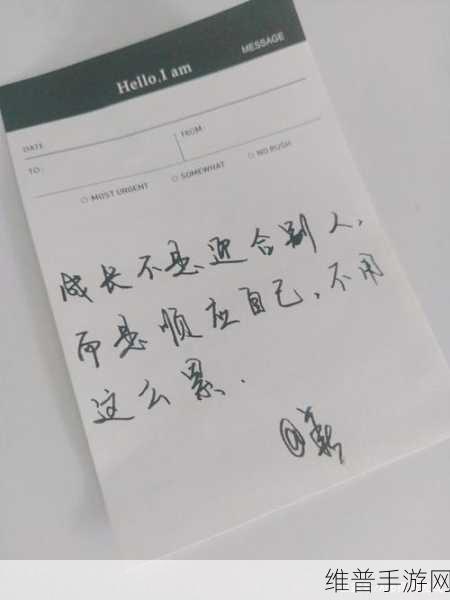 Hello.I am
MESSAGE
DATE
FROM:
TO:
MOST URGENT
SOMEWHAT
NO RUSH
成长不是迎合别人,
而是顺应自己,不用
这么累.
@
维普手游网